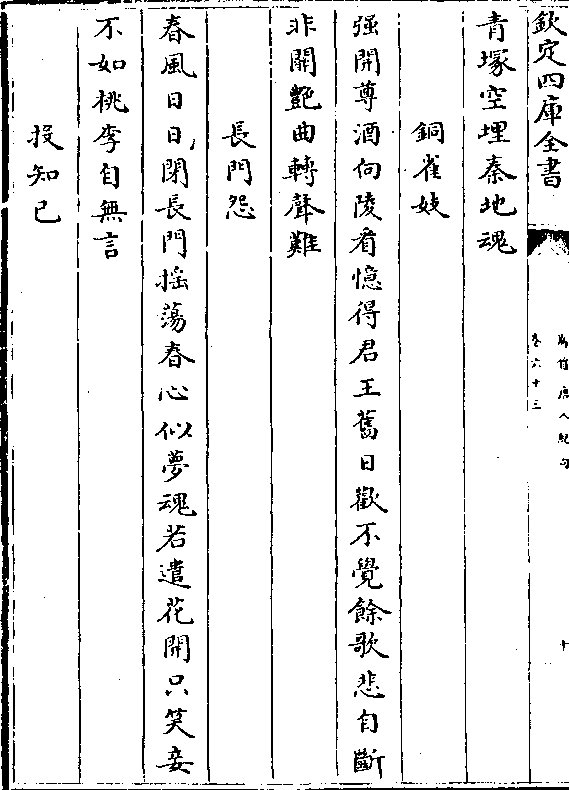 欽定四庫全書
卷六十三
青塚空埋秦地魂
銅雀妓
强開尊酒向陵看憶得君王舊日歡不覺餘歌悲自斷
非關艶曲轉聲難
長門怨
春風日日閉長門揺蕩春心似夢魂若遣花開只笑妾
不如桃李自無言
投知己